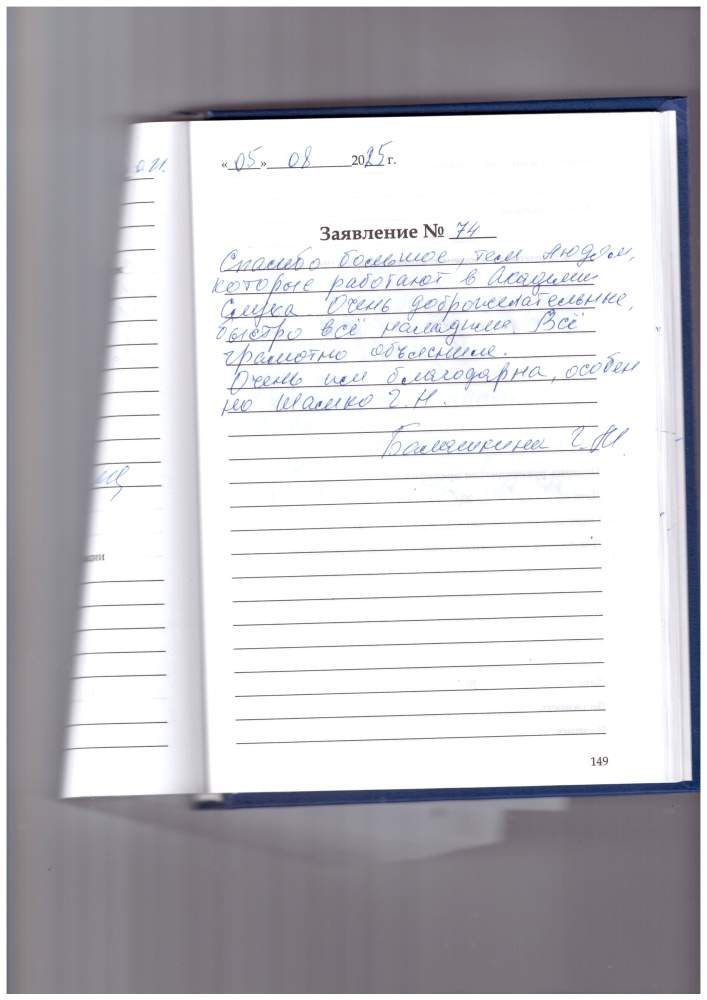 «05» 08 2025 г.
Заявление № 74
Спасибо большое, тем людям,
которые работают в Академии
Слуха. Очень доброжелательные,
быстро всё наладили. Всё
грамотно объяснили.
Очень им благодарна, особен
но Шамко Г. Н.
Балашкина Г.
149
ции